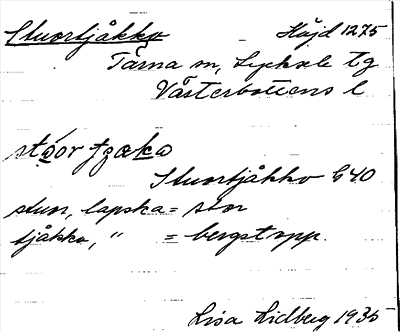 Stuortjåkko Höjd 1275
Tärna sn, Lycksele tg
Västerbottens l
stɷor tʃɑkɑ
Stuortjåkko G40
stuor, lapska = stor
tjåkko, " = bergstopp.
Lisa Lidberg 1935